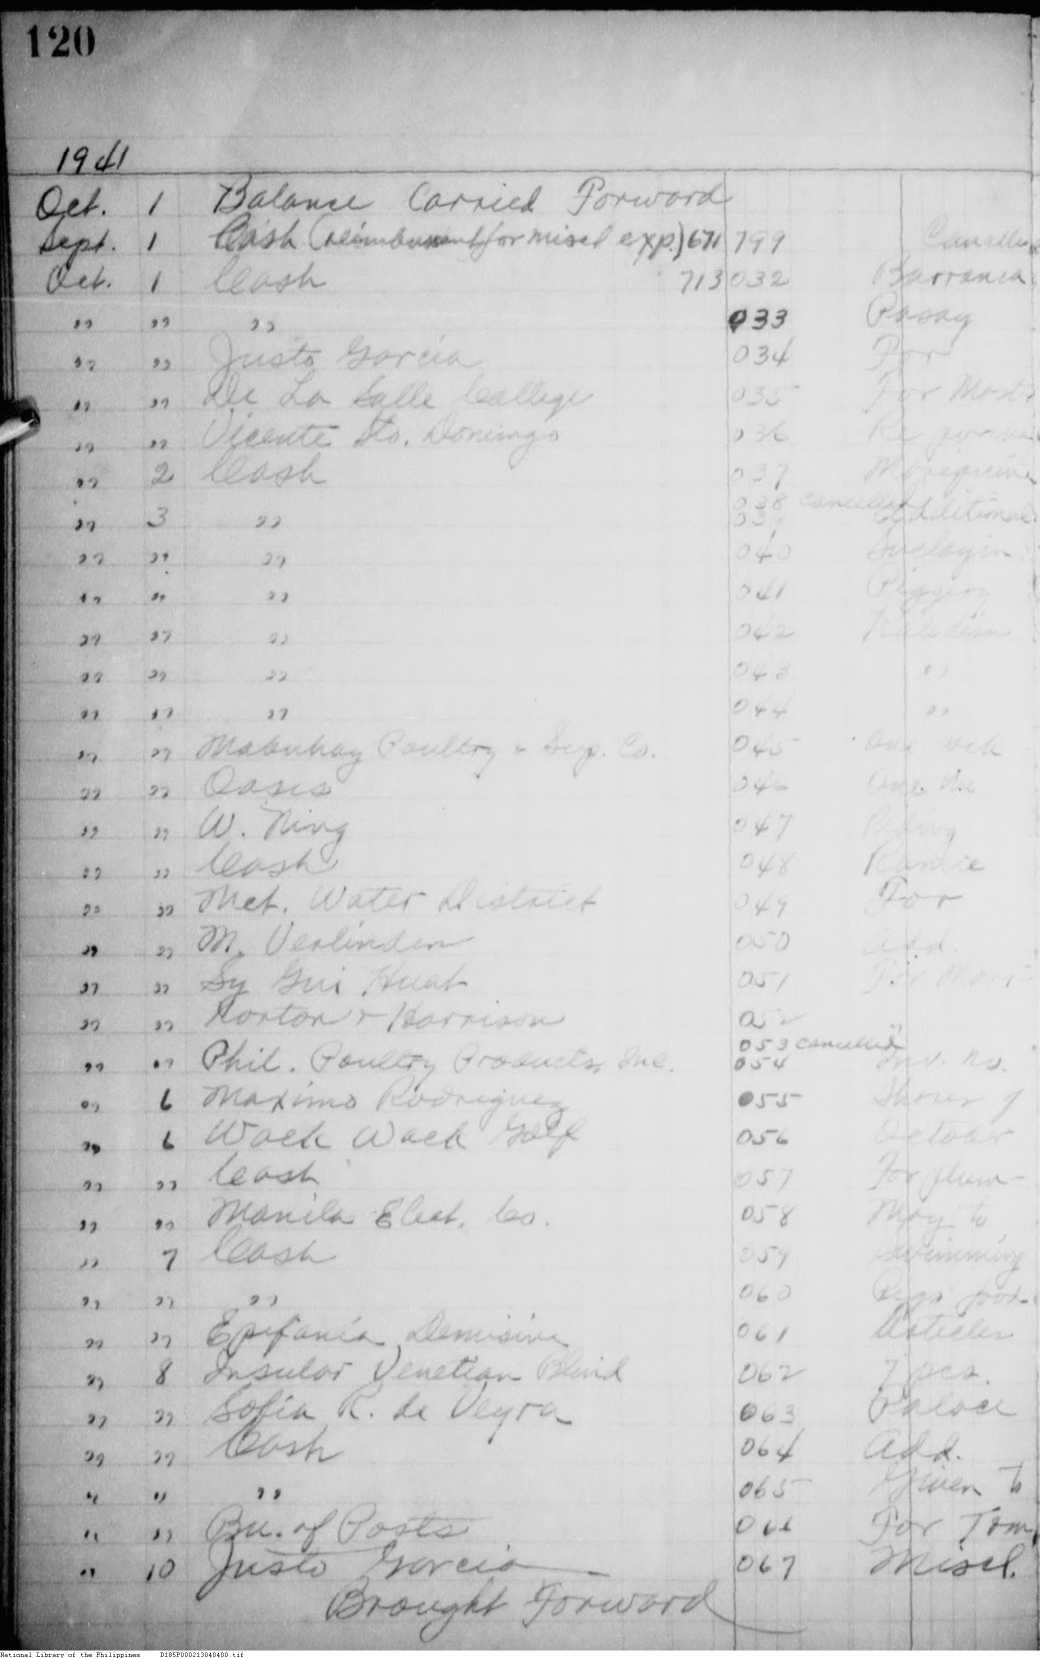 120
1941
Oct. 1 Balance Carried Forward
Sept. 1 Cash (reimbursement for miscl exp.) 671 799
Oct. 1 Cash 713 032 Barranca
" " " 033 Pasay
" " Justo Garcia 034 For
" " De La Salle College 035 For
" " Vicente Sto. Domingo 036
" 2 Cash 037
038 cancelled
" 3 " 039 Additional
" " " 040
" " " 041 Piggery
" " " 042
" " " 043 "
" " " 044 "
" " Mabuhay Poultry & Sup. Co. 045 One
" " Oasis 046 One
" " W. Ning 047
" " Cash 048
" " Met. Water District 049 For
" " M. Verlinden 050 Add.
" " Sy Gui Huat 051 For
" " Norton & Harrison 052
053 cancelled
" " Phil. Poultry Products, Inc. 054 Inv. No.
" 6 Maximo Rodriguez 055 Shoes
" 6 Wack Wack Golf 056 October
" " Cash 057 For
" " Manila Elect. Co. 058 May to
" 7 Cash 059 swimming
" " " 060
" " Epifania 061 Articles
" 8 Insular Venetian Blind 062 7 pcs.
" " Sofia R. de Veyra 063 Palace
" " Cash 064 Add.
" " " 065 Given to
" " Bu. of Posts 066 For Tom
" 10 Justo Garcia 067 Miscl.
Brought Forward
National Library of the Philippines D185P000213040400.tif